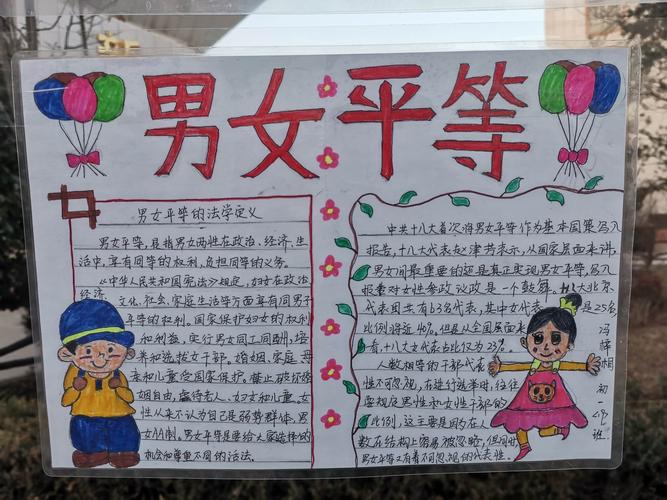 男女平等
男女平等的法学定义
男女平等,是指男女两性在政治、经济、生
活中,享有同等的权利,负担同等的义务。
《中华人民共和国宪法》规定,妇女在政治
经济、文化、社会、家庭生活等方面享有同男子
平等的权利。国家保护妇女的权利
和利益,实行男女同工同酬,培
养和选拔女干部。婚姻、家庭、母
亲和儿童受国家保护。禁止破坏婚
姻自由,虐待老人、妇女和儿童。女
性从来不认为自己是弱势群体,男
女平等是要给大家选择的
机会和尊重不同的活法。
中共十八大首次将男女平等作为基本国策写入
报告,十八大代表赵津芳表示,从国家层面来讲,
男女间最重要的还是真正实现男女平等,写入
报告对女性参政议政是一个鼓舞。十八大北京
代表团共有63名代表,其中女代表 是25名,
比例将近40%。但是从全国层面来
看,十八大女代表占比仅为23%。
人数相等的干部代表
性不可忽视,在进行选举时,往往
要规定男性和女性干部的
比例,这主要是因为在人
数在结构上容易被忽略,但同时
男女平等又有着不可忽视的代表性。
相
初
班